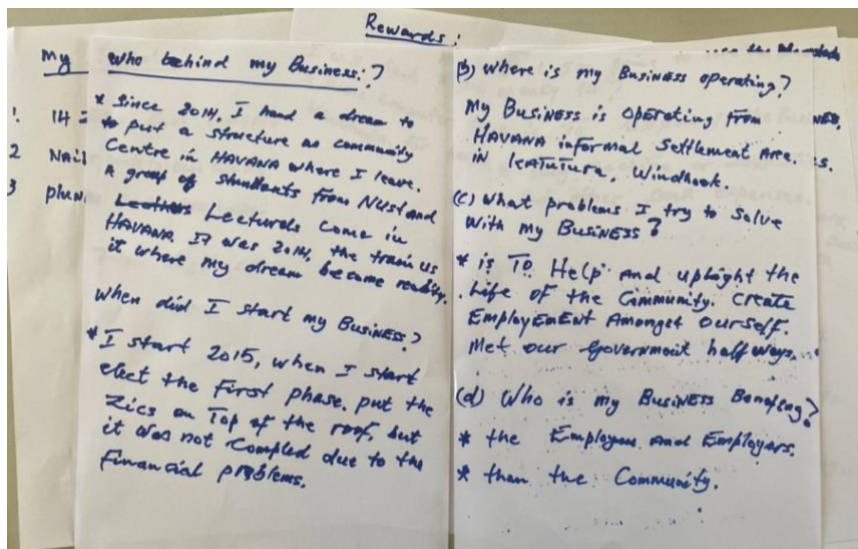 Rewards:
My
1. 14
2 NAil
3 plun
who behind my Business:?
* Since 2014, I had a dream to
to put a structure as community
Centre in HAVANA where I leave.
A group of studdants from Nust and
Lecturels Came in
HAVANA. IT was 2014, the train us
it where my dream become reality.
When did I start my Business?
* I start 2015, when I start
elect the First phase. put the
Zics on Top of the roof, but
it was not Compled due to the
Financial problems.
(b) Where is my Business operating?
My Business is Operating From
HAVANA informal Settlement Area.
in KATUTURA, Windhoek.
(c) What problems I try to Solve
With my Business?
* is To Help and uplight the
Life of the Community. Create
EmployemENt Amongst ourself.
Met our Government half ways.
(d) Who is my Business Benefing?
* the Employees and Employers.
* than the Community.